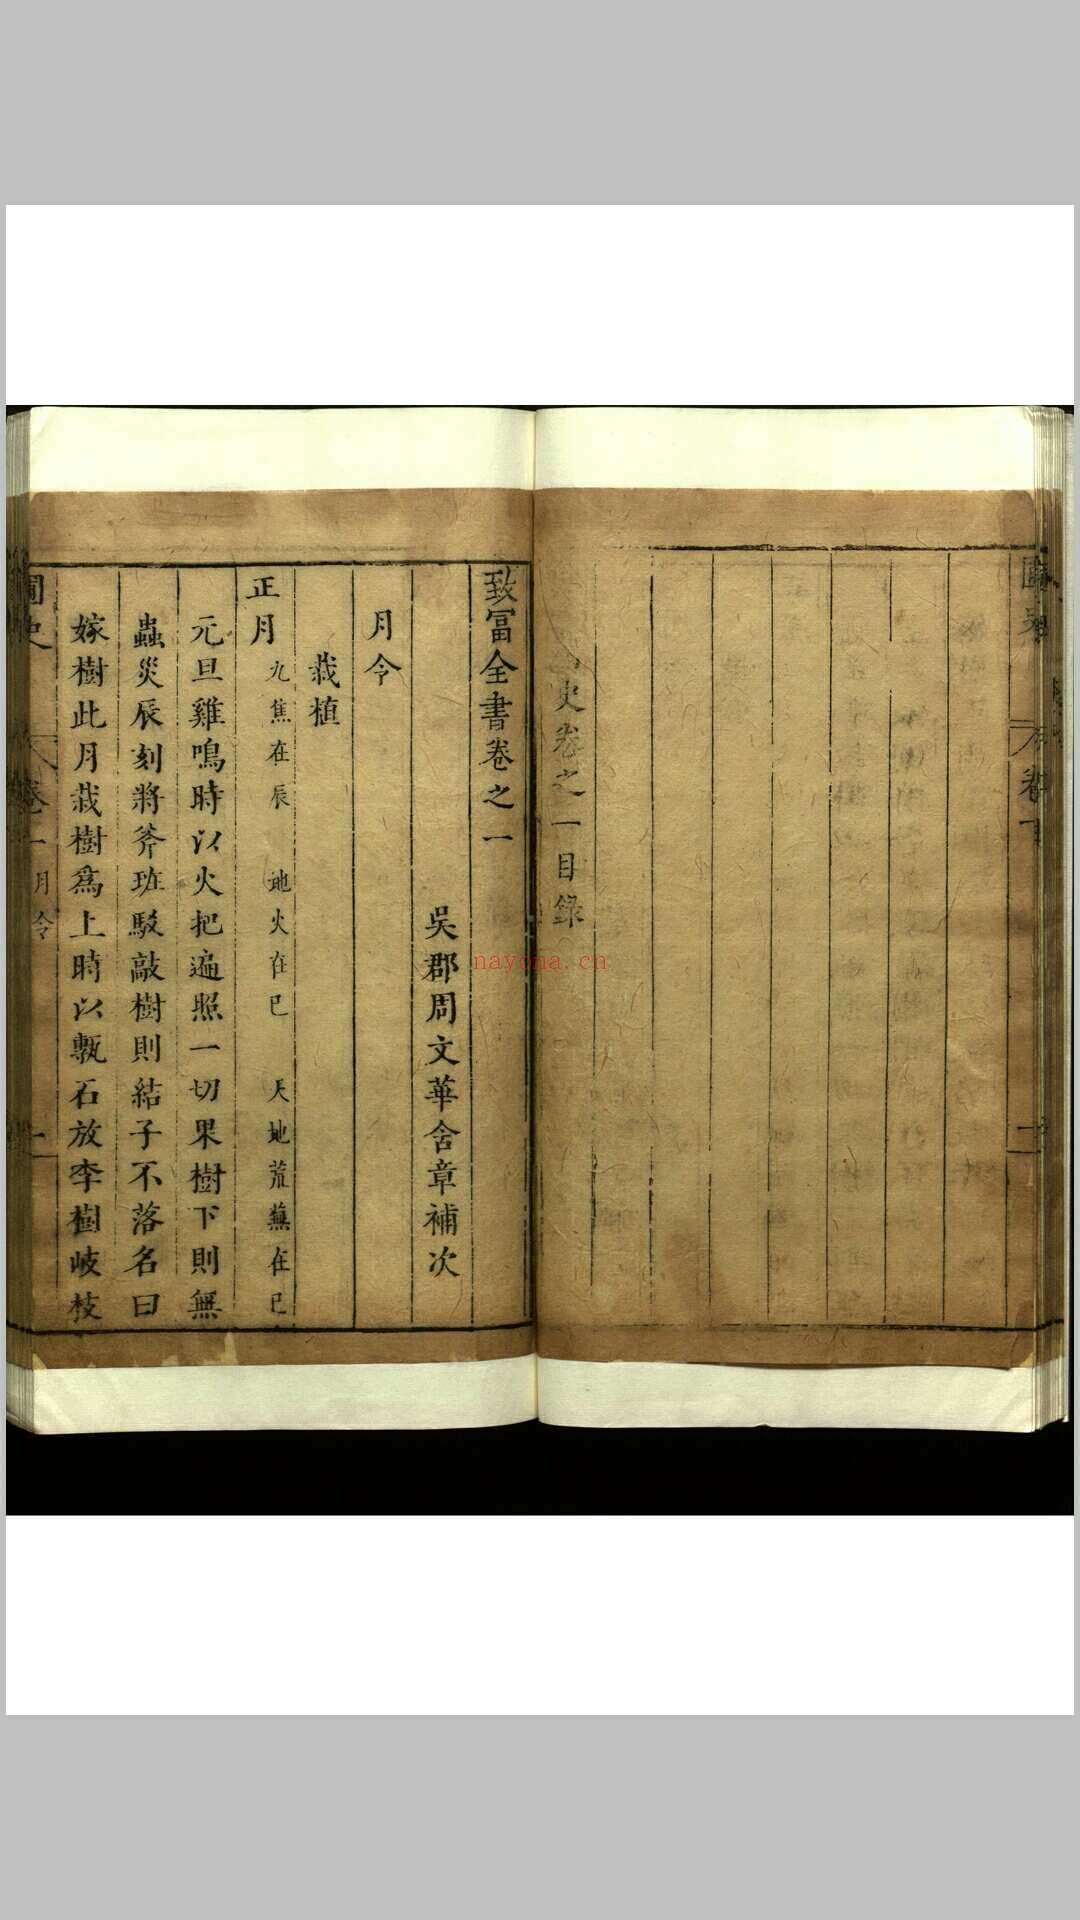 史卷之一目錄
致富全書卷之一
吳郡周文華含章補次
月令
栽植
正月 九焦在辰 地火在巳 天地荒蕪在巳
元旦雞鳴時以火把遍照一切果樹下則無
蟲災辰刻將斧班駁敲樹則結子不落名曰
嫁樹此月栽樹為上時以甎石放李樹岐枝
圃史 卷一 月令 一
nayona.cn